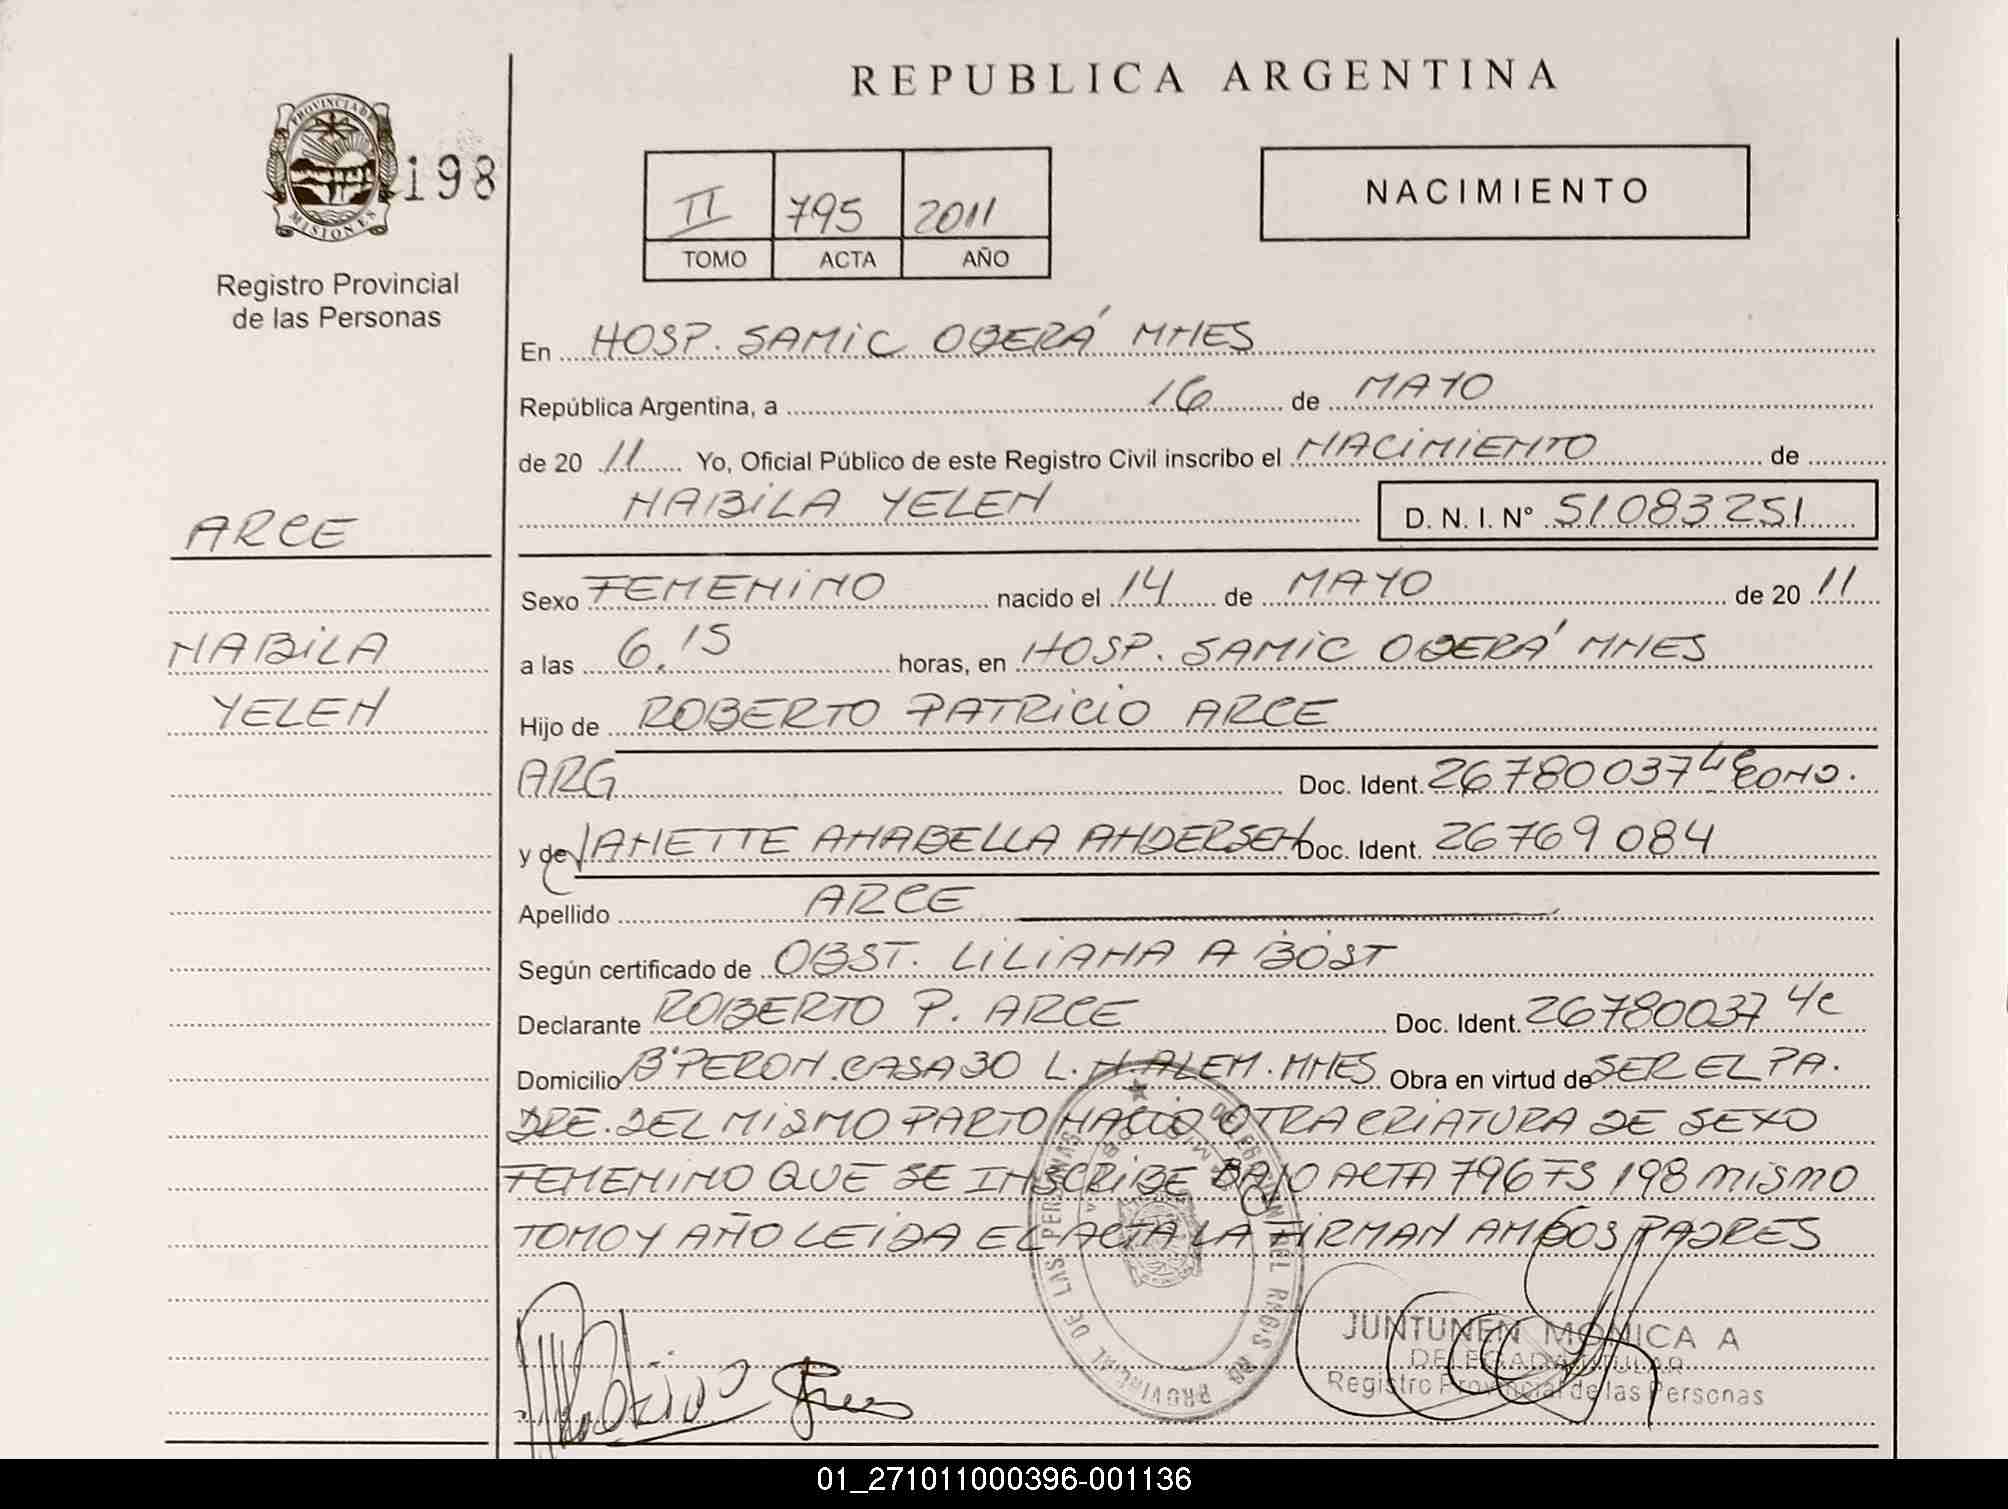 REPUBLICA ARGENTINA
PROVINCIA DE MISIONES
198
Registro Provincial
de las Personas
II 795 2011
TOMO ACTA AÑO
NACIMIENTO
En HOSP. SAMIC OBERÁ MNES
República Argentina, a 16 de MAYO
de 20 11 Yo, Oficial Público de este Registro Civil inscribo el NACIMIENTO de
NABILA YELEN D. N. I. N° 51083251
ARCE
NABILA
YELEN
Sexo FEMENINO nacido el 14 de MAYO de 20 11
a las 6.15 horas, en HOSP. SAMIC OBERÁ MNES
Hijo de ROBERTO PATRICIO ARCE
ARG Doc. Ident. 26780037
y de JANETTE ANABELLA ANDERSEN Doc. Ident. 26769084
Apellido ARCE
Según certificado de OBST. LILIANA A BOST
Declarante ROBERTO P. ARCE Doc. Ident. 26780037
Domicilio B° PERON. CASA 30 L. N. ALEM. MNES Obra en virtud de SER EL PA.
DRE. DEL MISMO PARTO NACIO OTRA CRIATURA DE SEXO
FEMENINO QUE SE INSCRIBE BAJO ACTA 796 FS 198 MISMO
TOMO Y AÑO LEIDA EL ACTA LA FIRMAN AMBOS PADRES
JUNTUNEN MONICA A
DELEGADA TITULAR
Registro Provincial de las Personas
01_271011000396-001136